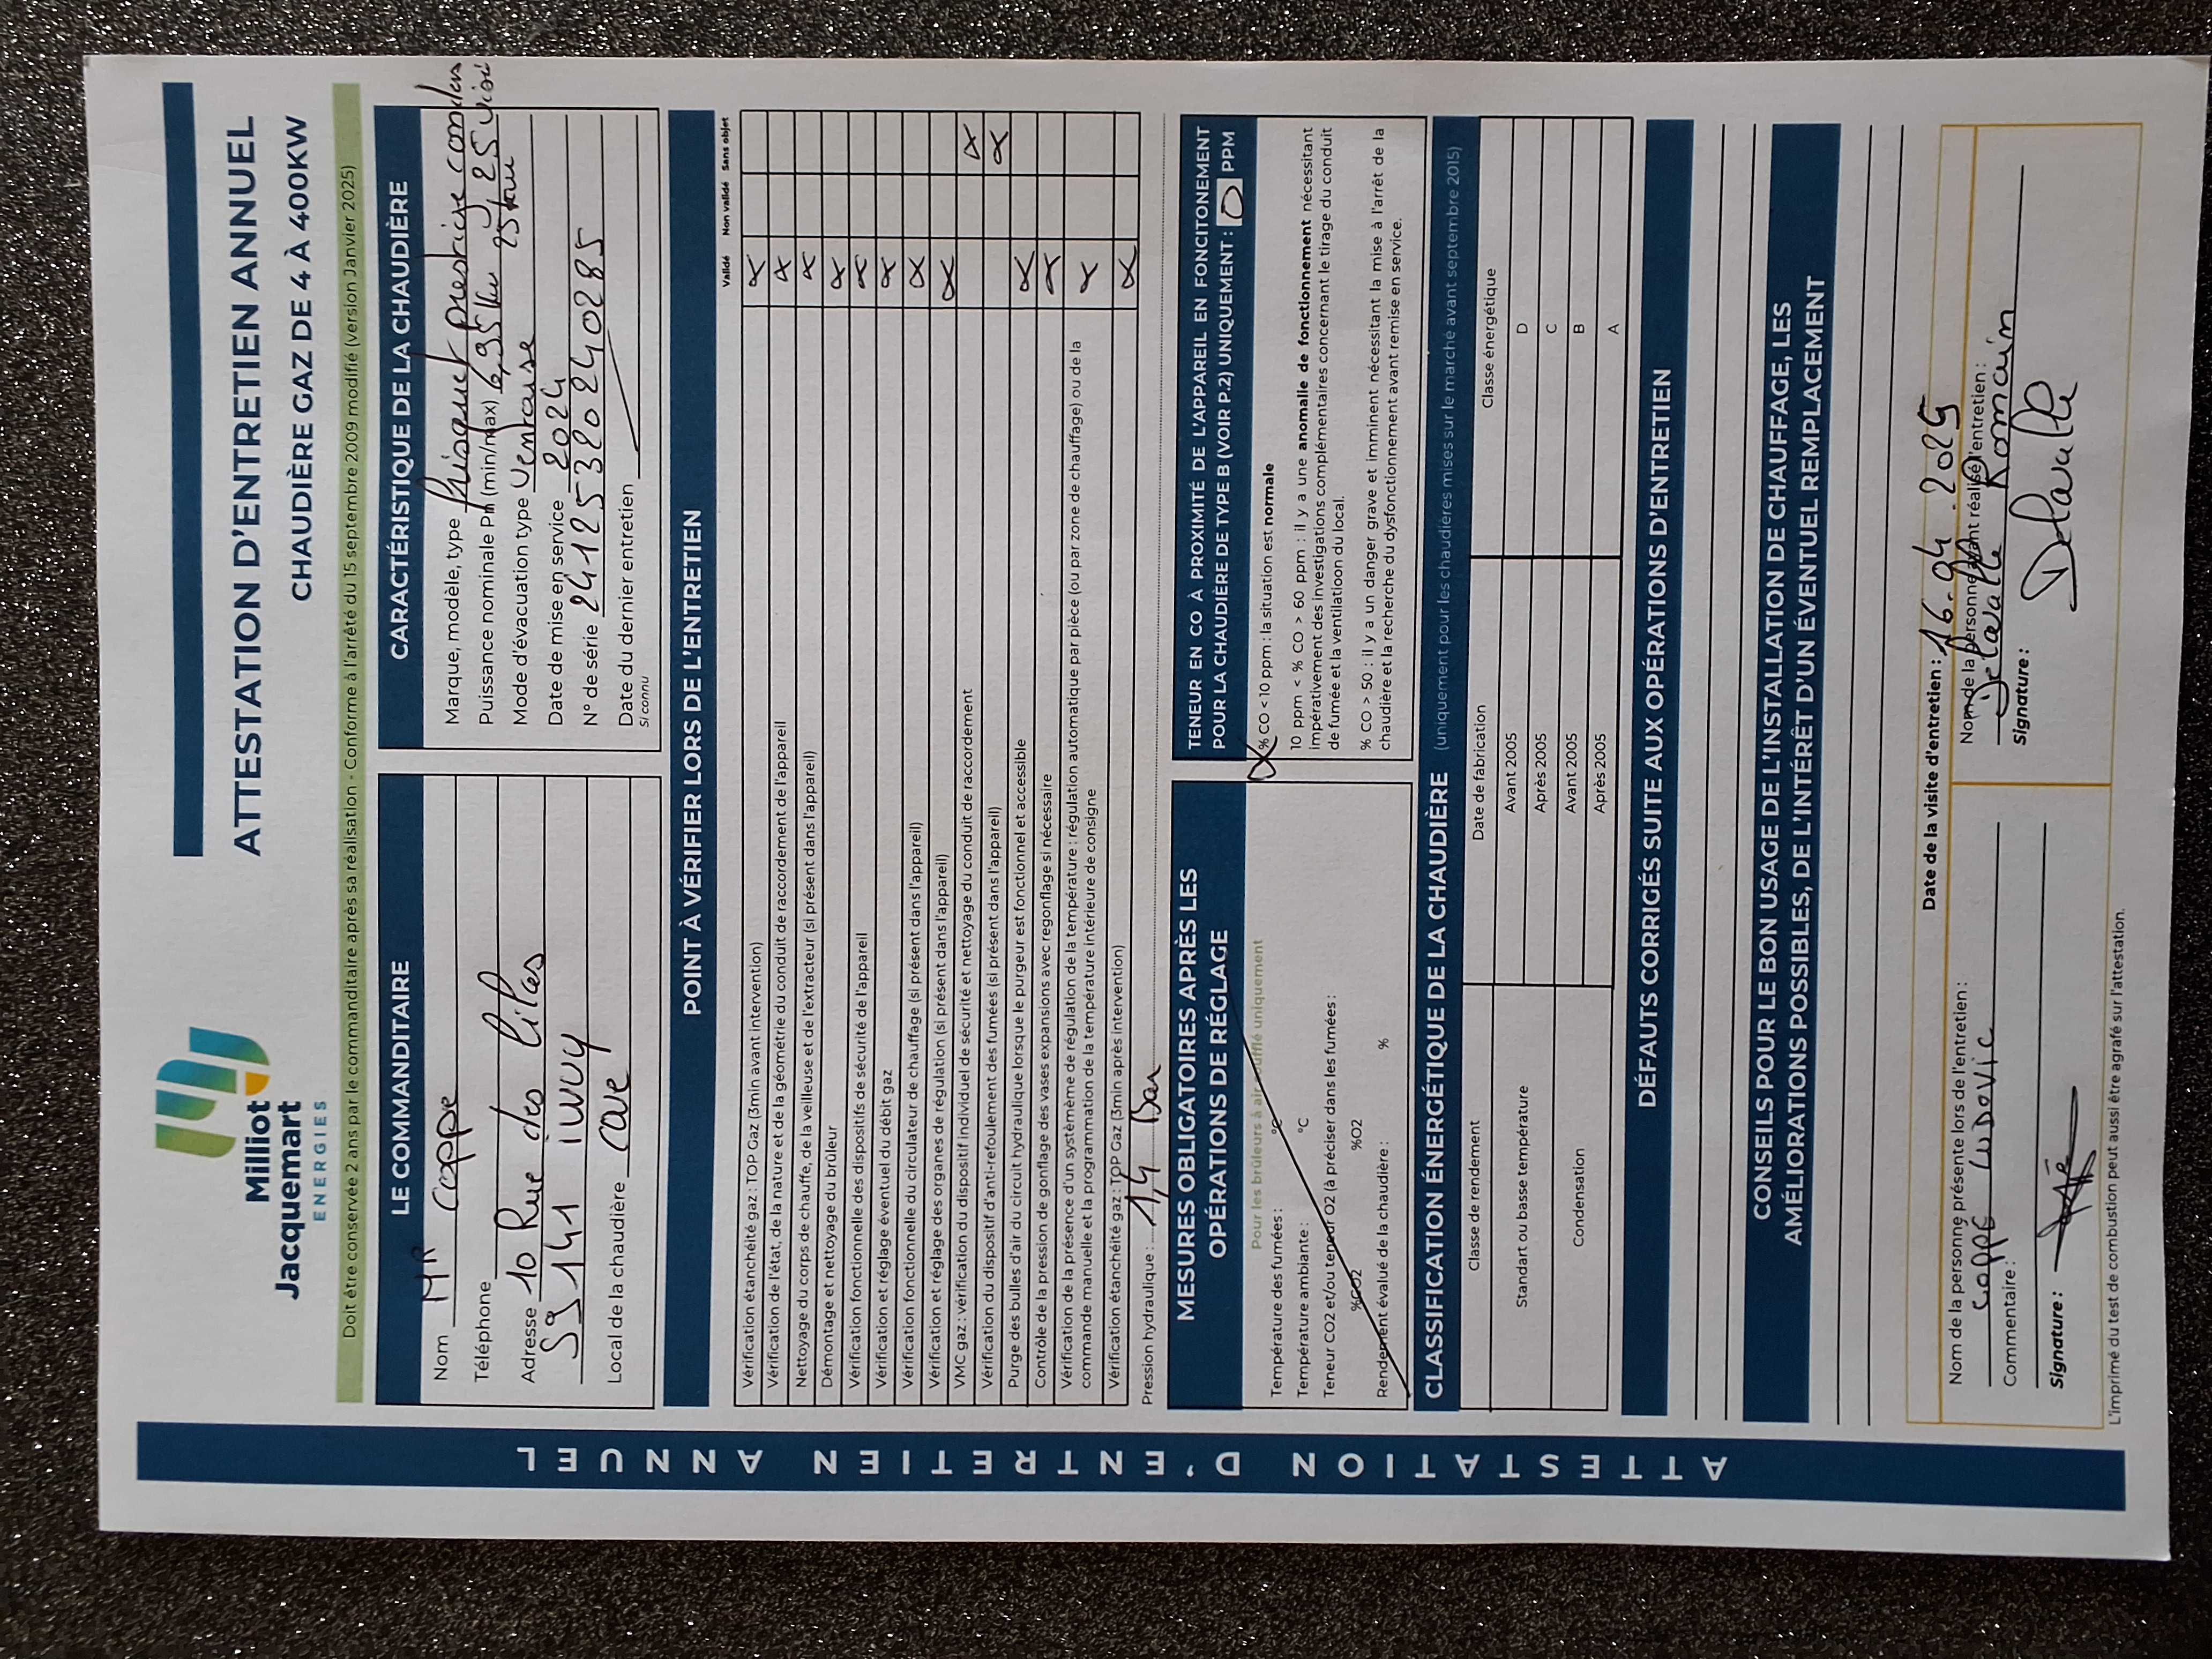 Milliot
Jacquemart
ENERGIES
ATTESTATION D'ENTRETIEN ANNUEL
CHAUDIÈRE GAZ DE 4 À 400KW
Doit être conservée 2 ans par le commanditaire après sa réalisation - Conforme à l'arrêté du 15 septembre 2009 modifié (version Janvier 2025)
LE COMMANDITAIRE
Nom MR Coppe
Téléphone
Adresse 10 Rue des Lilas
59141 IWUY
Local de la chaudière cave
CARACTÉRISTIQUE DE LA CHAUDIÈRE
Marque, modèle, type frisquet prestige conden
Puissance nominale Pn (min/max) 6,95kw 25
Mode d'évacuation type Ventouse 25kw
Date de mise en service 2024
N° de série 24125320240285
Date du dernier entretien
Si connu
POINT À VÉRIFIER LORS DE L'ENTRETIEN
Validé Non validé Sans objet
Vérification étanchéité gaz : TOP Gaz (3min avant intervention)
Vérification de l'état, de la nature et de la géométrie du conduit de raccordement de l'appareil
Nettoyage du corps de chauffe, de la veilleuse et de l'extracteur (si présent dans l'appareil)
Démontage et nettoyage du brûleur
Vérification fonctionnelle des dispositifs de sécurité de l'appareil
Vérification et réglage éventuel du débit gaz
Vérification fonctionnelle du circulateur de chauffage (si présent dans l'appareil)
Vérification et réglage des organes de régulation (si présent dans l'appareil)
VMC gaz : vérification du dispositif individuel de sécurité et nettoyage du conduit de raccordement
Vérification du dispositif d'anti-refoulement des fumées (si présent dans l'appareil)
Purge des bulles d'air du circuit hydraulique lorsque le purgeur est fonctionnel et accessible
Contrôle de la pression de gonflage des vases expansions avec regonflage si nécessaire
Vérification de la présence d'un systèmème de régulation de la température : régulation automatique par pièce (ou par zone de chauffage) ou de la
commande manuelle et la programmation de la température intérieure de consigne
Vérification étanchéité gaz : TOP Gaz (3min après intervention)
Pression hydraulique : 1,4 Bar
MESURES OBLIGATOIRES APRÈS LES
OPÉRATIONS DE RÉGLAGE
Pour les brûleurs à air soufflé uniquement
Température des fumées : °C
Température ambiante : °C
Teneur CO2 et/ou teneur O2 (à préciser dans les fumées :
%CO2 %O2
Rendement évalué de la chaudière : %
TENEUR EN CO À PROXIMITÉ DE L'APPAREIL EN FONCITONEMENT
POUR LA CHAUDIÈRE DE TYPE B (VOIR P.2) UNIQUEMENT : 0 PPM
% CO < 10 ppm : la situation est normale
10 ppm < % CO > 60 ppm : il y a une anomalie de fonctionnement nécessitant
impérativement des investigations complémentaires concernant le tirage du conduit
de fumée et la ventilatioon du local.
% CO > 50 : il y a un danger grave et imminent nécessitant la mise à l'arrêt de la
chaudière et la recherche du dysfonctionnement avant remise en service.
CLASSIFICATION ÉNERGÉTIQUE DE LA CHAUDIÈRE (uniquement pour les chaudières mises sur le marché avant septembre 2015)
Classe de rendement Date de fabrication Classe énergétique
Standart ou basse température Avant 2005 D
Après 2005 C
Condensation Avant 2005 B
Après 2005 A
DÉFAUTS CORRIGÉS SUITE AUX OPÉRATIONS D'ENTRETIEN
CONSEILS POUR LE BON USAGE DE L'INSTALLATION DE CHAUFFAGE, LES
AMÉLIORATIONS POSSIBLES, DE L'INTÉRÊT D'UN ÉVENTUEL REMPLACEMENT
Date de la visite d'entretien : 16.04.2025
Nom de la personne présente lors de l'entretien :
COPPE LUDOVIC
Commentaire :
Signature :
Nom de la personne ayant réalisé l'entretien :
Delavalle Romain
Signature :
Delavalle
L'imprimé du test de combustion peut aussi être agrafé sur l'attestation.
ATTESTATION D'ENTRETIEN ANNUEL